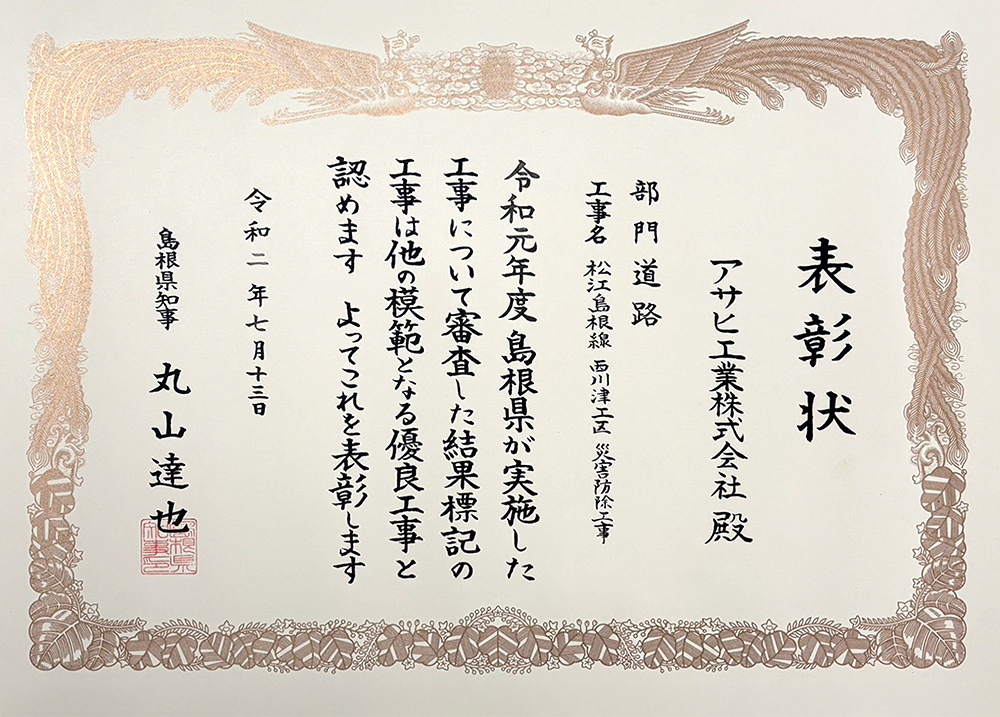 表彰状
アサヒ工業株式会社 殿
部門 道路
工事名 松江島根線 西川津工区 災害防除工事
令和元年度 島根県が実施した
工事について審査した結果標記の
工事は他の模範となる優良工事と
認めます よってこれを表彰します
令和二年七月十三日
島根県知事 丸山達也
島根県知事印